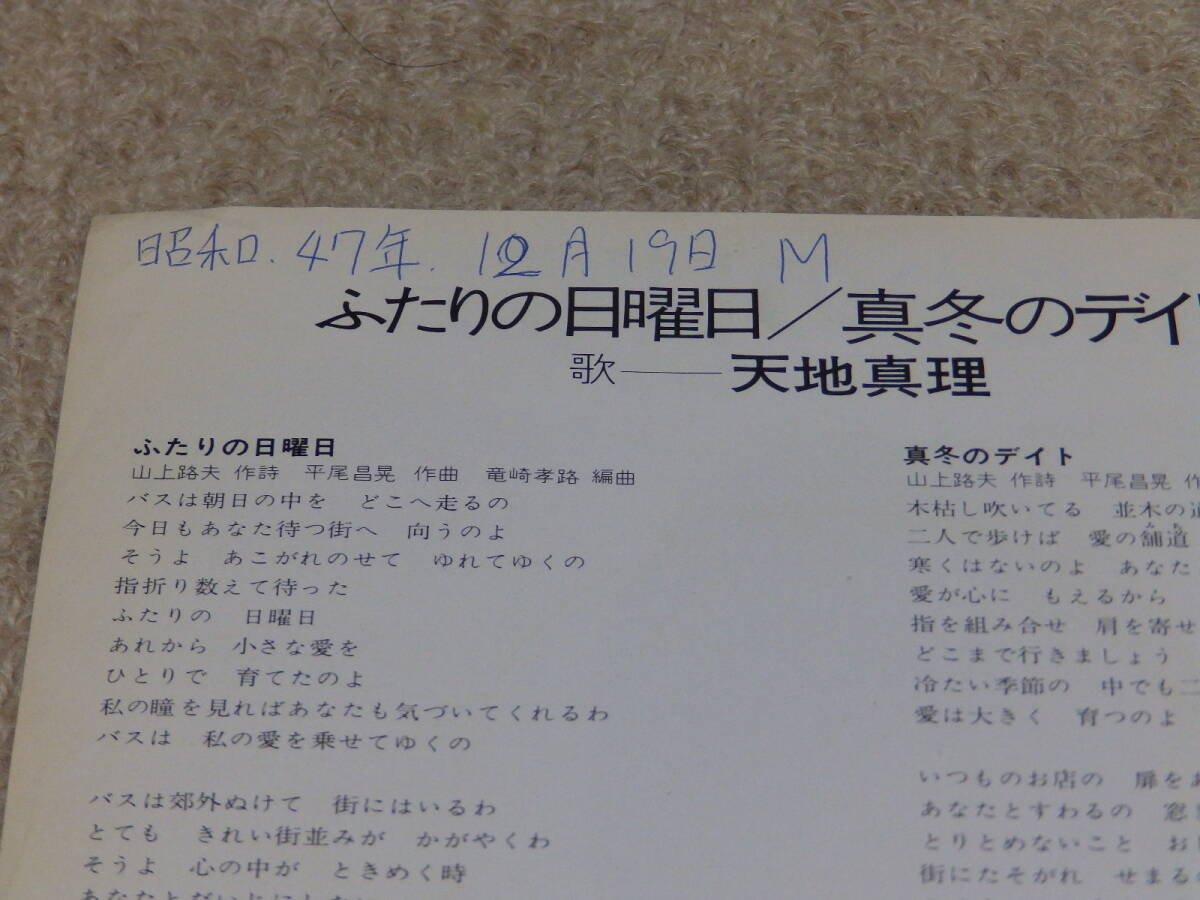 昭和.47年.12月19日 M
ふたりの日曜日／真冬のデイ
歌――天地真理
ふたりの日曜日
山上路夫 作詩 平尾昌晃 作曲 竜崎孝路 編曲
バスは朝日の中を どこへ走るの
今日もあなた待つ街へ 向うのよ
そうよ あこがれのせて ゆれてゆくの
指折り数えて待った
ふたりの 日曜日
あれから 小さな愛を
ひとりで 育てたのよ
私の瞳を見ればあなたも気づいてくれるわ
バスは 私の愛を乗せてゆくの
バスは郊外ぬけて 街にはいるわ
とても きれい街並みが かがやくわ
そうよ 心の中が ときめく時
真冬のデイト
山上路夫 作詩 平尾昌晃 作
木枯し吹いてる 並木の道
二人で歩けば 愛の舗道
寒くはないのよ あなた
愛が心に もえるから
指を組み合せ 肩を寄せ
どこまで行きましょう
冷たい季節の 中でも二
愛は大きく 育つのよ
いつものお店の 扉をあ
あなたとすわるの 窓
とりとめないこと お
街にたそがれ せまるの